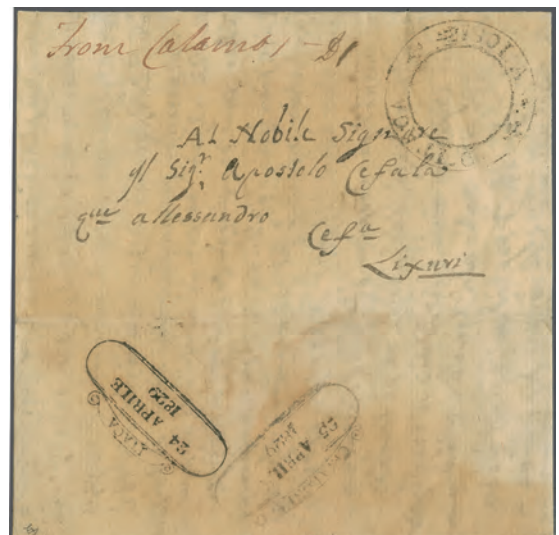 From Calamo
Al Nobile Signore
Il Sigr. Apostolo Cefalà
qm Allessandro
Cefa
Lixuri
ISOLA
24
APRILE
1829
ITACA
25
APRIL